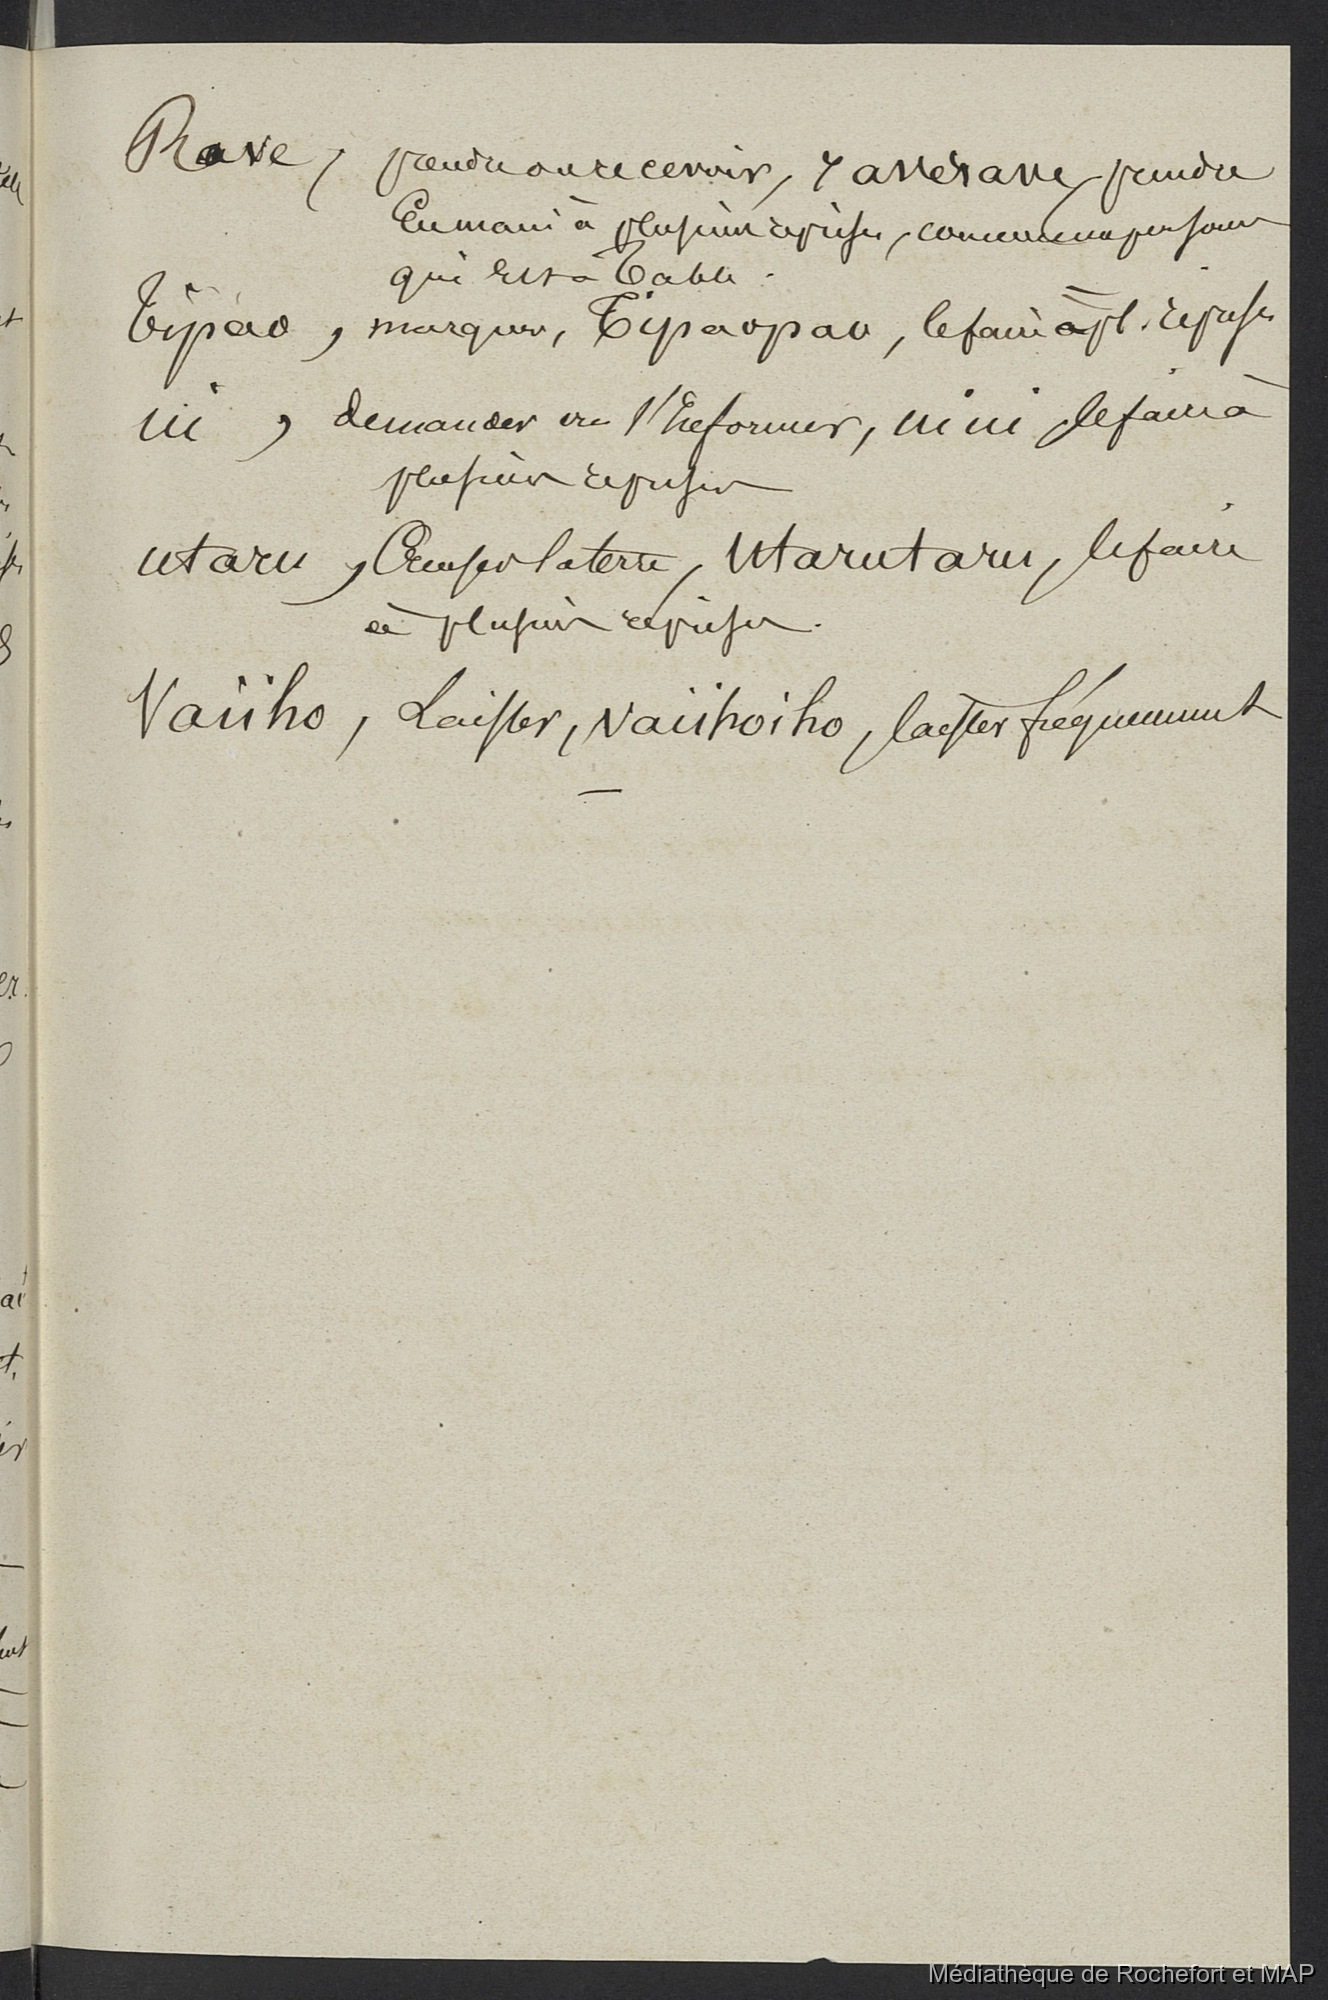 Rave, prendre ou recevoir, raverave, prendre
En main à plusieurs reprises, comme une personne
qui est à Table.
Tipao, marquer, Tipaopao, le faire à pl. reprises
ui, demander ou s'Informer, uiui, le faire à
plusieurs reprises
utaru, Creuser la terre, Utarutaru, le faire
à plusieurs reprises.
Vaiiho, Laisser, vaiihoiho, laisser fréquemment
Médiathèque de Rochefort et MAP